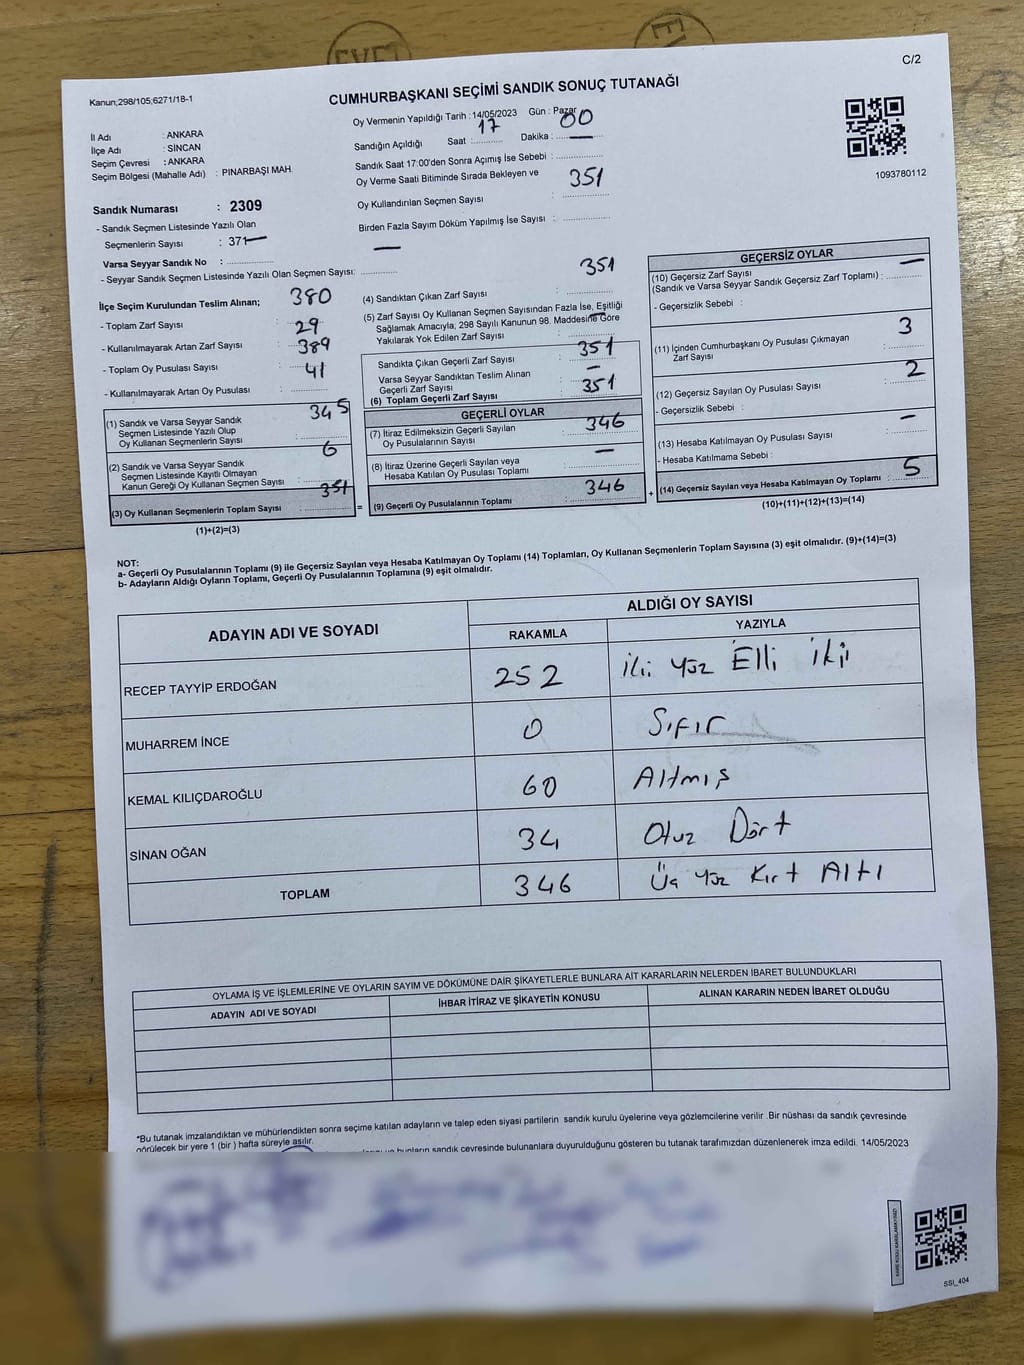 EVET
C/2
Kanun;298/105;6271/18-1
CUMHURBAŞKANI SEÇİMİ SANDIK SONUÇ TUTANAĞI
İl Adı : ANKARA
İlçe Adı : SİNCAN
Seçim Çevresi : ANKARA
Seçim Bölgesi (Mahalle Adı) : PINARBAŞI MAH.
Oy Vermenin Yapıldığı Tarih : 14/05/2023 Gün : Pazar
Sandığın Açıldığı Saat : 17 Dakika : 00
Sandık Saat 17:00'den Sonra Açımış İse Sebebi :
Oy Verme Saati Bitiminde Sırada Bekleyen ve
Oy Kullandırılan Seçmen Sayısı : 351
Birden Fazla Sayım Döküm Yapılmış İse Sayısı :
1093780112
Sandık Numarası : 2309
- Sandık Seçmen Listesinde Yazılı Olan
Seçmenlerin Sayısı : 371
Varsa Seyyar Sandık No :
- Seyyar Sandık Seçmen Listesinde Yazılı Olan Seçmen Sayısı: —
İlçe Seçim Kurulundan Teslim Alınan;
- Toplam Zarf Sayısı : 380
- Kullanılmayarak Artan Zarf Sayısı : 29
- Toplam Oy Pusulası Sayısı : 389
- Kullanılmayarak Artan Oy Pusulası : 41
(1) Sandık ve Varsa Seyyar Sandık
Seçmen Listesinde Yazılı Olup
Oy Kullanan Seçmenlerin Sayısı 345
(2) Sandık ve Varsa Seyyar Sandık
Seçmen Listesinde Kayıtlı Olmayan
Kanun Gereği Oy Kullanan Seçmen Sayısı : 6
(3) Oy Kullanan Seçmenlerin Toplam Sayısı 351
(1)+(2)=(3)
(4) Sandıktan Çıkan Zarf Sayısı : 351
(5) Zarf Sayısı Oy Kullanan Seçmen Sayısından Fazla İse, Eşitliği
Sağlamak Amacıyla, 298 Sayılı Kanunun 98. Maddesine Göre
Yakılarak Yok Edilen Zarf Sayısı : —
Sandıkta Çıkan Geçerli Zarf Sayısı : 351
Varsa Seyyar Sandıktan Teslim Alınan
Geçerli Zarf Sayısı : —
(6) Toplam Geçerli Zarf Sayısı : 351
GEÇERLİ OYLAR
(7) İtiraz Edilmeksizin Geçerli Sayılan
Oy Pusulalarının Sayısı : 346
(8) İtiraz Üzerine Geçerli Sayılan veya
Hesaba Katılan Oy Pusulası Toplamı : —
= (9) Geçerli Oy Pusulalarının Toplamı : 346 +
GEÇERSİZ OYLAR
(10) Geçersiz Zarf Sayısı
(Sandık ve Varsa Seyyar Sandık Geçersiz Zarf Toplamı) : —
- Geçersizlik Sebebi :
(11) İçinden Cumhurbaşkanı Oy Pusulası Çıkmayan
Zarf Sayısı : 3
(12) Geçersiz Sayılan Oy Pusulası Sayısı : 2
- Geçersizlik Sebebi :
(13) Hesaba Katılmayan Oy Pusulası Sayısı : —
- Hesaba Katılmama Sebebi :
(14) Geçersiz Sayılan veya Hesaba Katılmayan Oy Toplamı : 5
(10)+(11)+(12)+(13)=(14)
NOT:
a- Geçerli Oy Pusulalarının Toplamı (9) ile Geçersiz Sayılan veya Hesaba Katılmayan Oy Toplamı (14) Toplamları, Oy Kullanan Seçmenlerin Toplam Sayısına (3) eşit olmalıdır. (9)+(14)=(3)
b- Adayların Aldığı Oyların Toplamı, Geçerli Oy Pusulalarının Toplamına (9) eşit olmalıdır.
ADAYIN ADI VE SOYADI ALDIĞI OY SAYISI
RAKAMLA YAZIYLA
RECEP TAYYİP ERDOĞAN 252 İki Yüz Elli İki
MUHARREM İNCE 0 Sıfır
KEMAL KILIÇDAROĞLU 60 Altmış
SİNAN OĞAN 34 Otuz Dört
TOPLAM 346 Üç Yüz Kırk Altı
OYLAMA İŞ VE İŞLEMLERİNE VE OYLARIN SAYIM VE DÖKÜMÜNE DAİR ŞİKAYETLERLE BUNLARA AİT KARARLARIN NELERDEN İBARET BULUNDUKLARI
ADAYIN ADI VE SOYADI İHBAR İTİRAZ VE ŞİKAYETİN KONUSU ALINAN KARARIN NEDEN İBARET OLDUĞU
*Bu tutanak imzalandıktan ve mühürlendikten sonra seçime katılan adayların ve talep eden siyasi partilerin sandık kurulu üyelerine veya gözlemcilerine verilir .Bir nüshası da sandık çevresinde
görülecek bir yere 1 (bir ) hafta süreyle asılır.
bunların sandık çevresinde bulunanlara duyurulduğunu gösteren bu tutanak tarafımızdan düzenlenerek imza edildi. 14/05/2023
SSİ_404